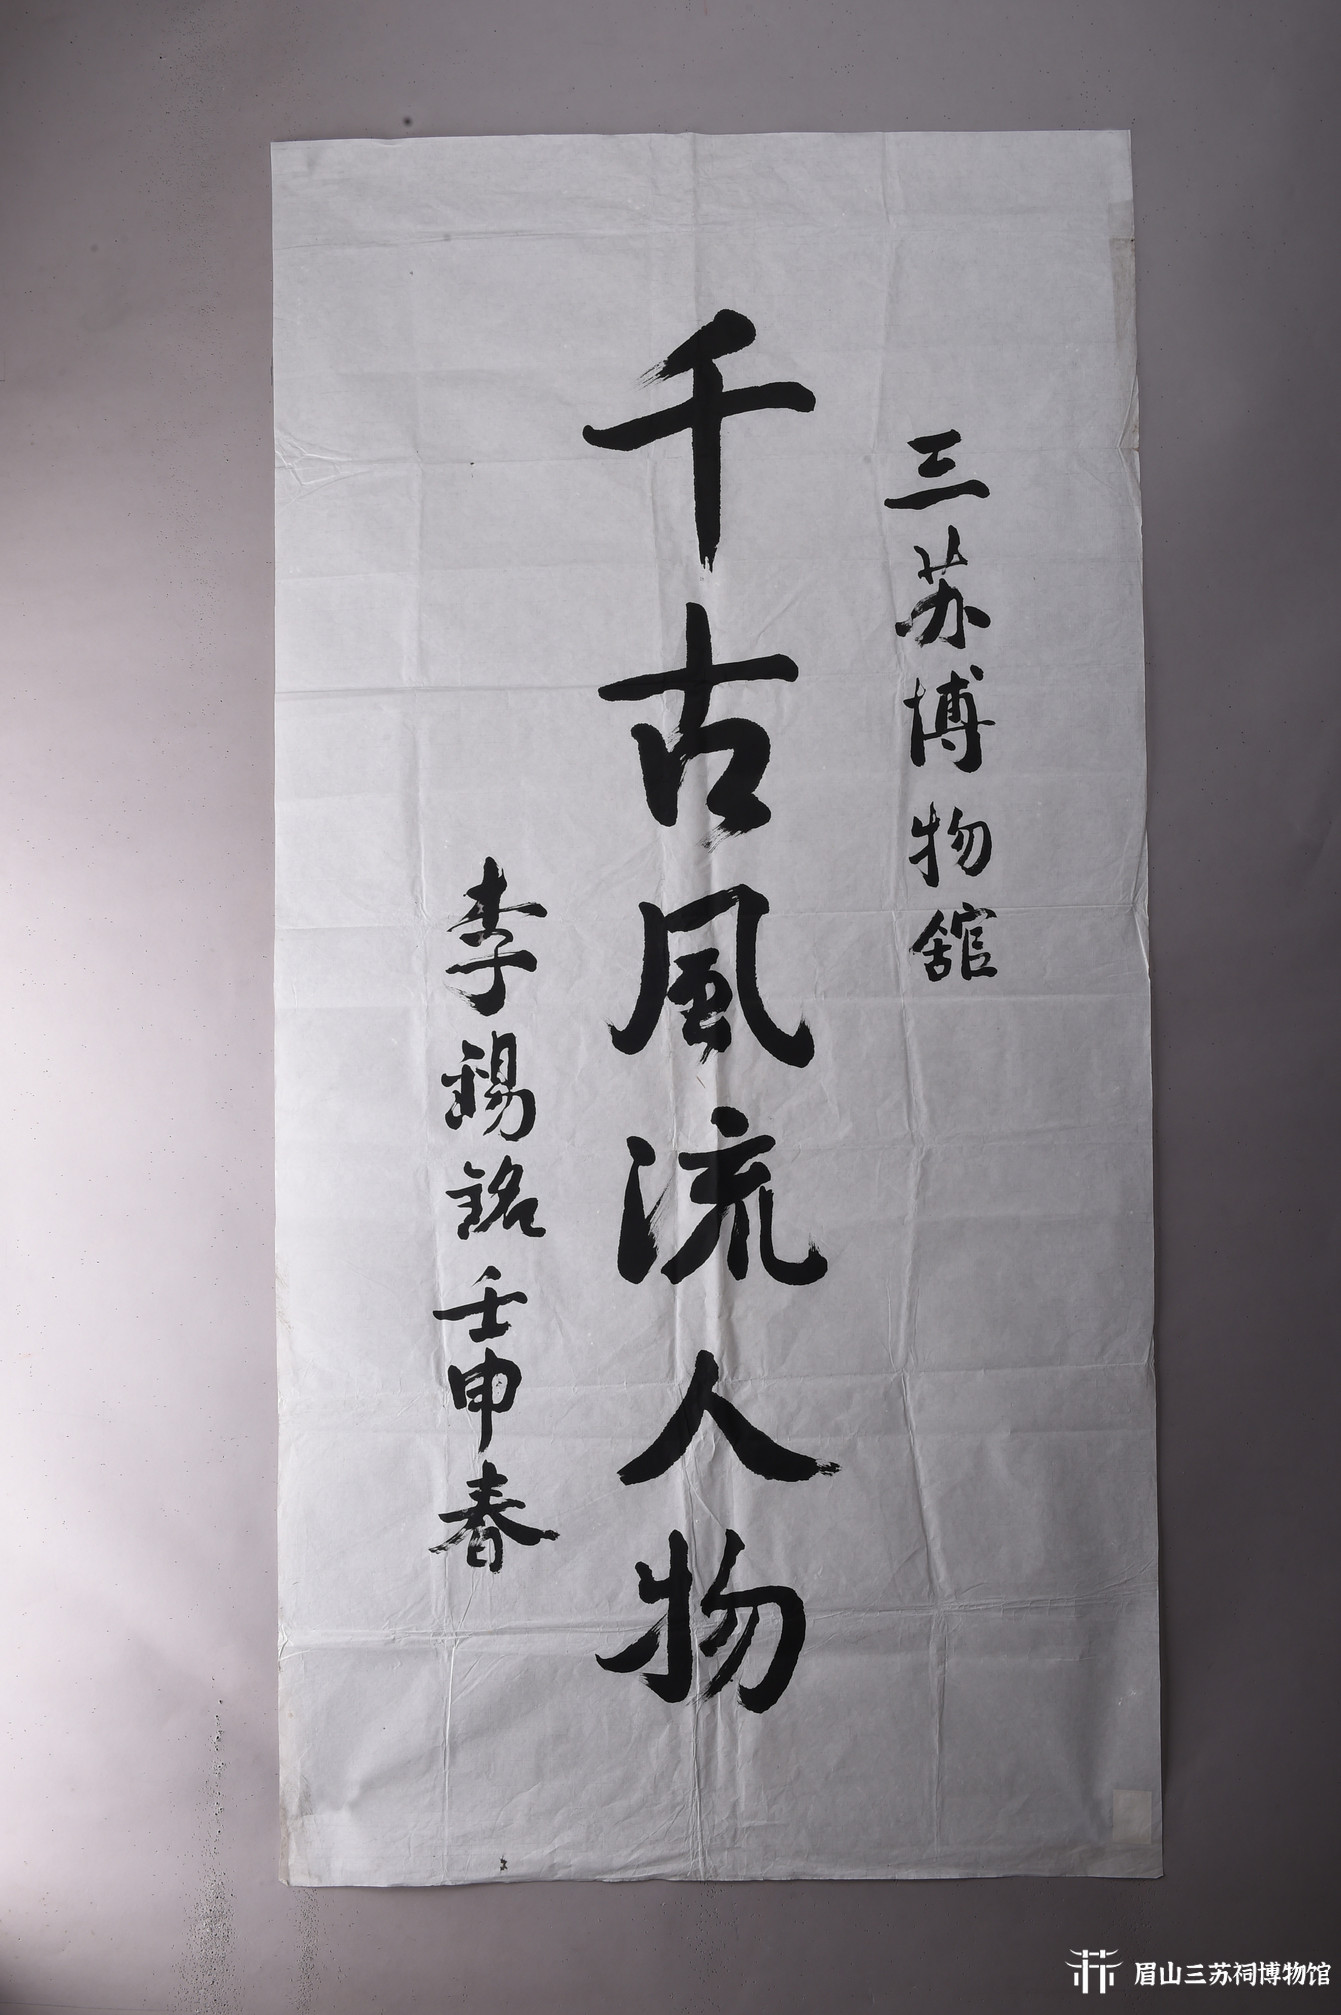 三苏博物舘
千古風流人物
李錫銘壬申春
眉山三苏祠博物馆